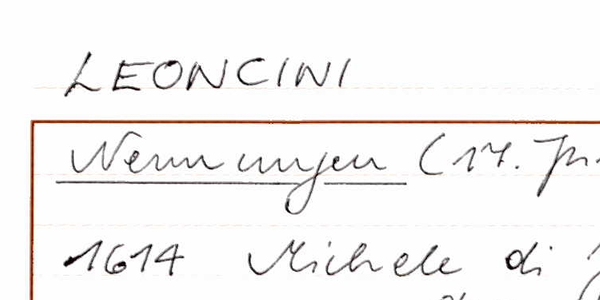 LEONCINI
Nennungen (17. Jh.
1614 Michele di